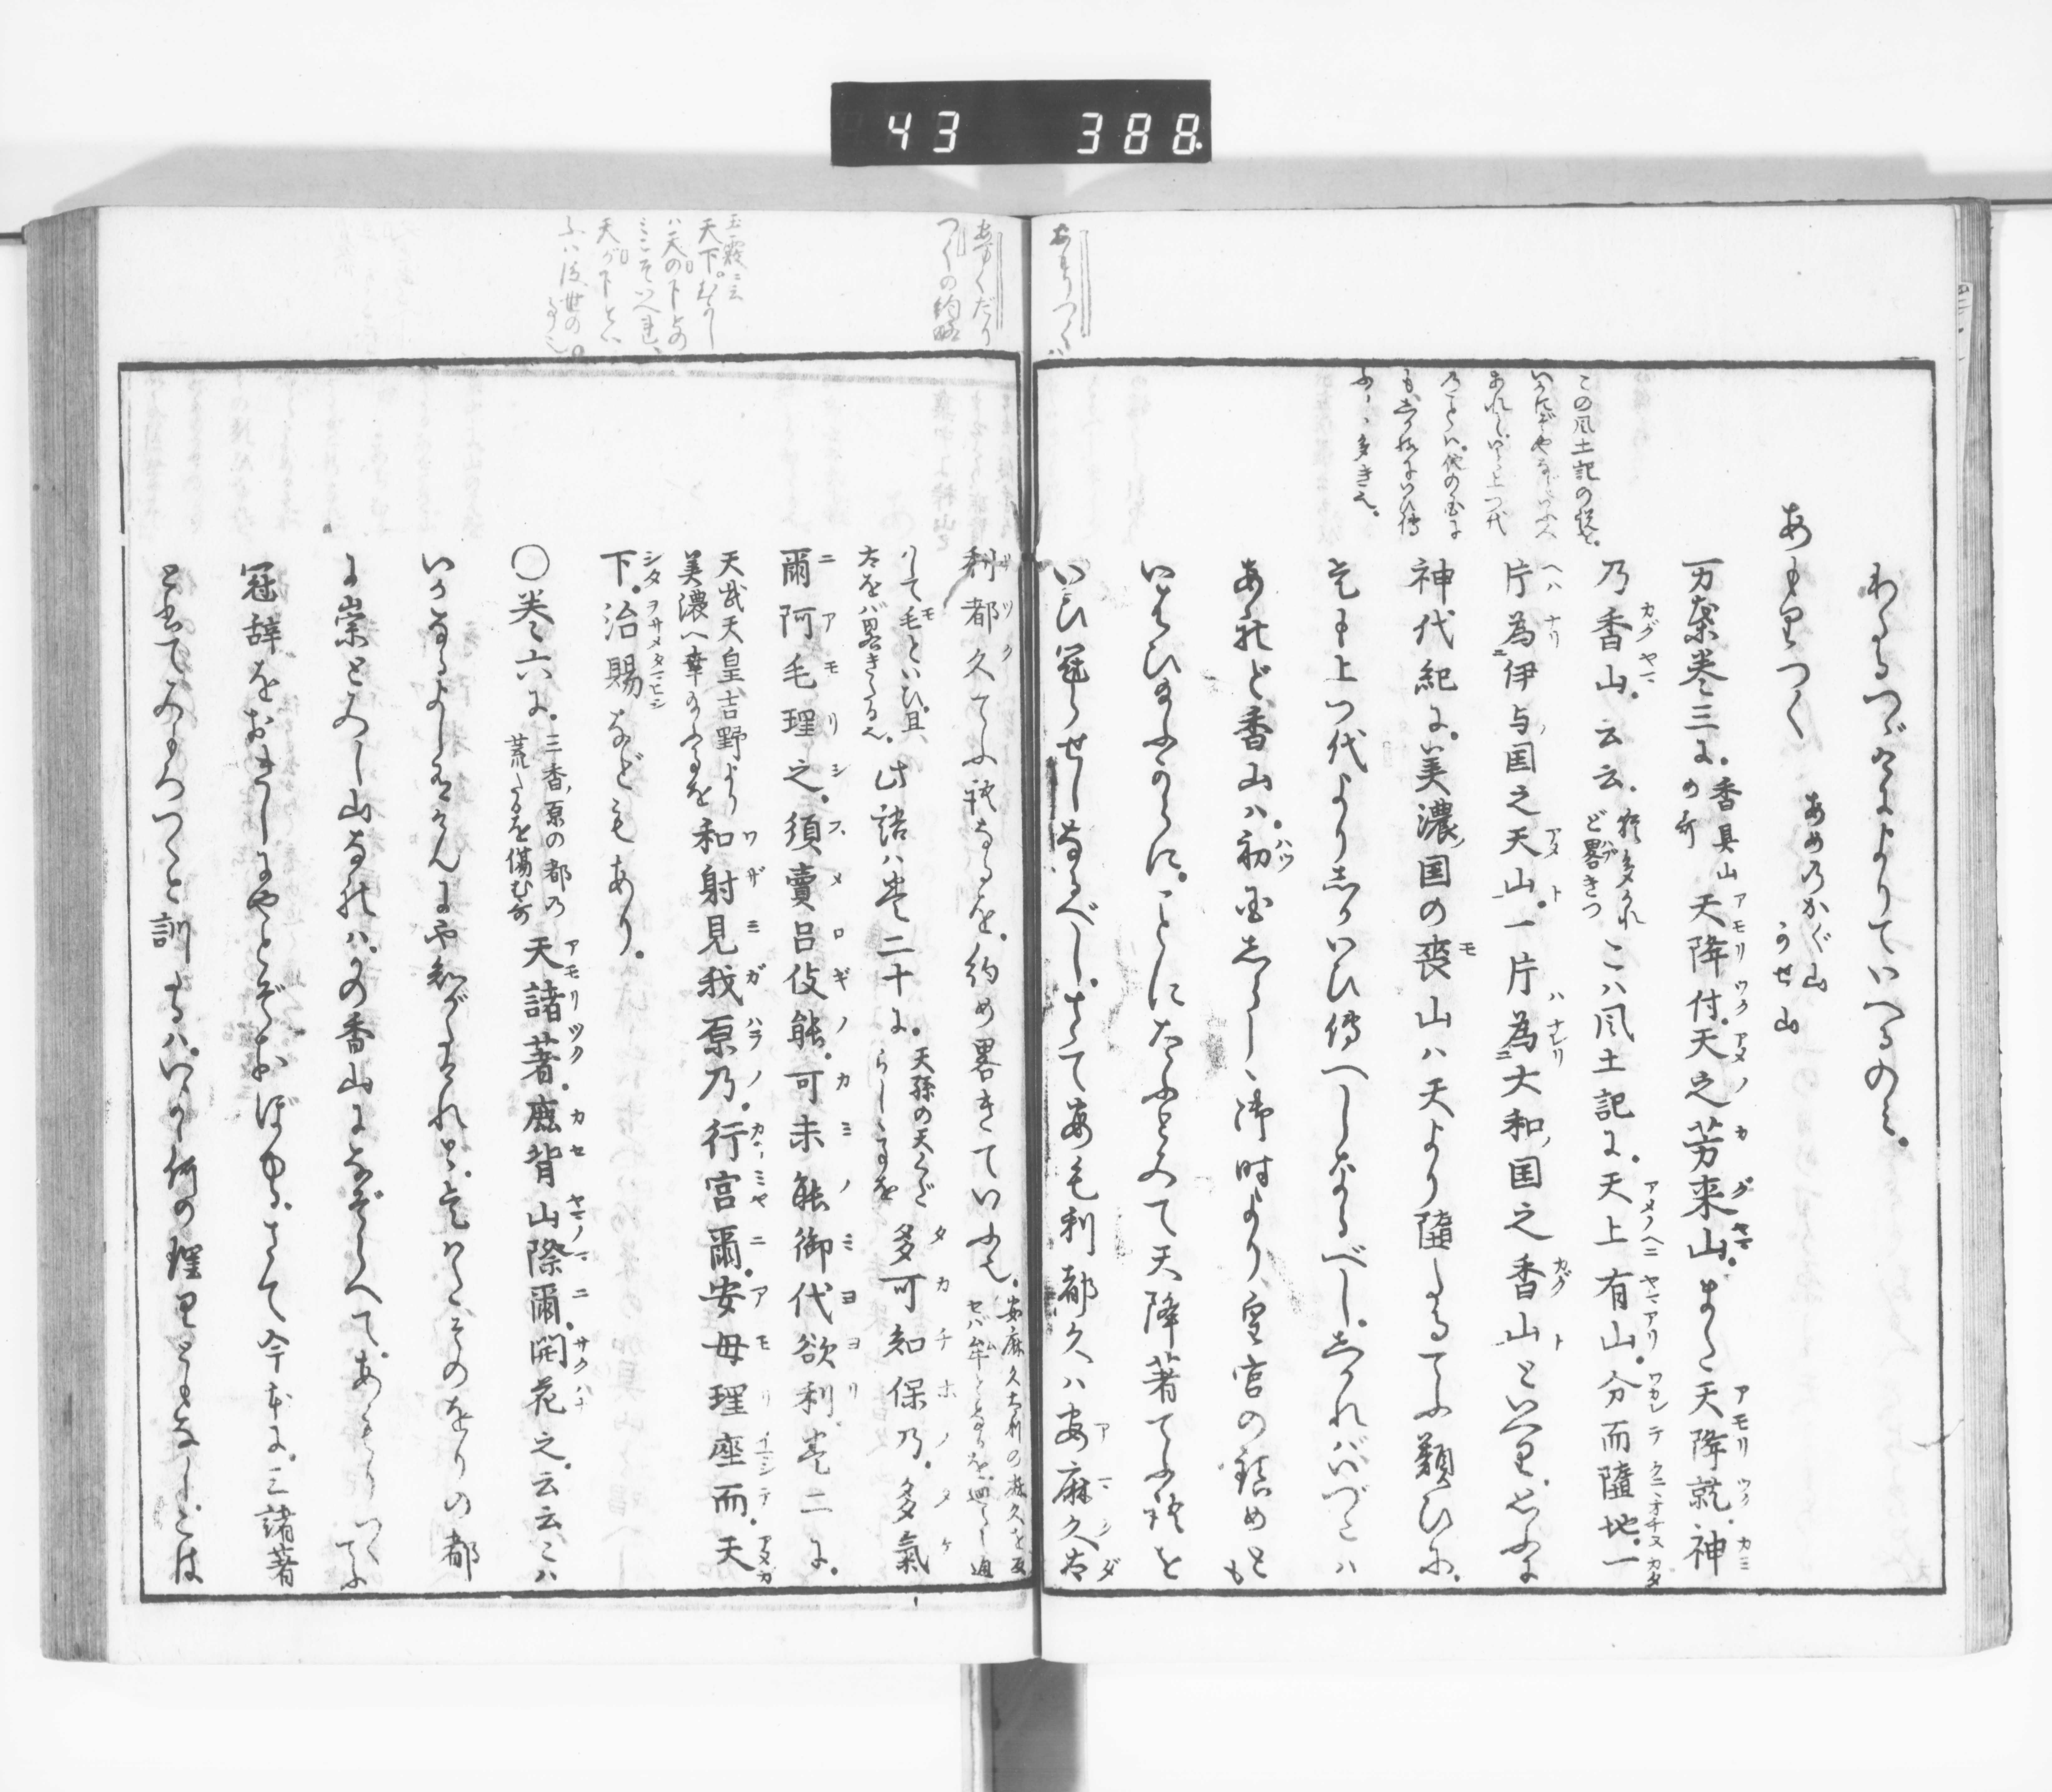 43 388
わたるつゞけによりていへるのみ。
あもりつく あめのかぐ山
かせ山
万葉巻三に。香具山の哥 天降付。天之芳来山。また天降就。神
乃香山。云云。猶多かれど畧きつ こハ風土記に。天上有山。分而堕地。一
片為伊与国之天山。一片為大和国之香山といへり。しかるに
神代紀に。美濃国の喪山ハ天より堕たるてふ類ひに。
もと上つ代よりしかいひ傳へしなるべし。しかれバいづこハ
あれど香山ハ。初国しらしゝ御時より、皇宮の鎮めと
いはひまふからに。ことにたふとみて天降著てふ語を
いひ冠らせしなるべし。さて安毛利都久ハ安麻久太
この風土記の説を。
利都久てふ語なるを。約め畧きていふ也。
りて毛といひ。且、
太をバ畧きたる也。此語ハ巻二十に。天孫の天くだ
らしゝを 多可知保乃。多氣
爾阿毛理之。須賣呂伎能。可未能御代欲利。巻二に。
天武天皇吉野より
美濃へ幸のことを 和射見我原乃。行宮爾。安母理座而。天
下。治賜などもあり。
○巻六に。三香原の都の
荒たるを傷む哥 天諸著。鹿背山際爾。開花之。云云こハ
いかなるよし有けんにや知がたけれど、もとハこゝそのをりの都
に崇とみし山なれハ。かの香山になぞらへて。あもりつくてふ
冠辞をおきしにやとぞおぼゆる。さて今本に。三諸著
とあてみもろつくと訓たるハ。いかに何の理りともなし。こは
あもりつくハ
あまくだり
つくの約略
玉霰ニ云
天下。むかし
ハ天の下との
ミこそいへれ、
天が下とい
ふハ後世の